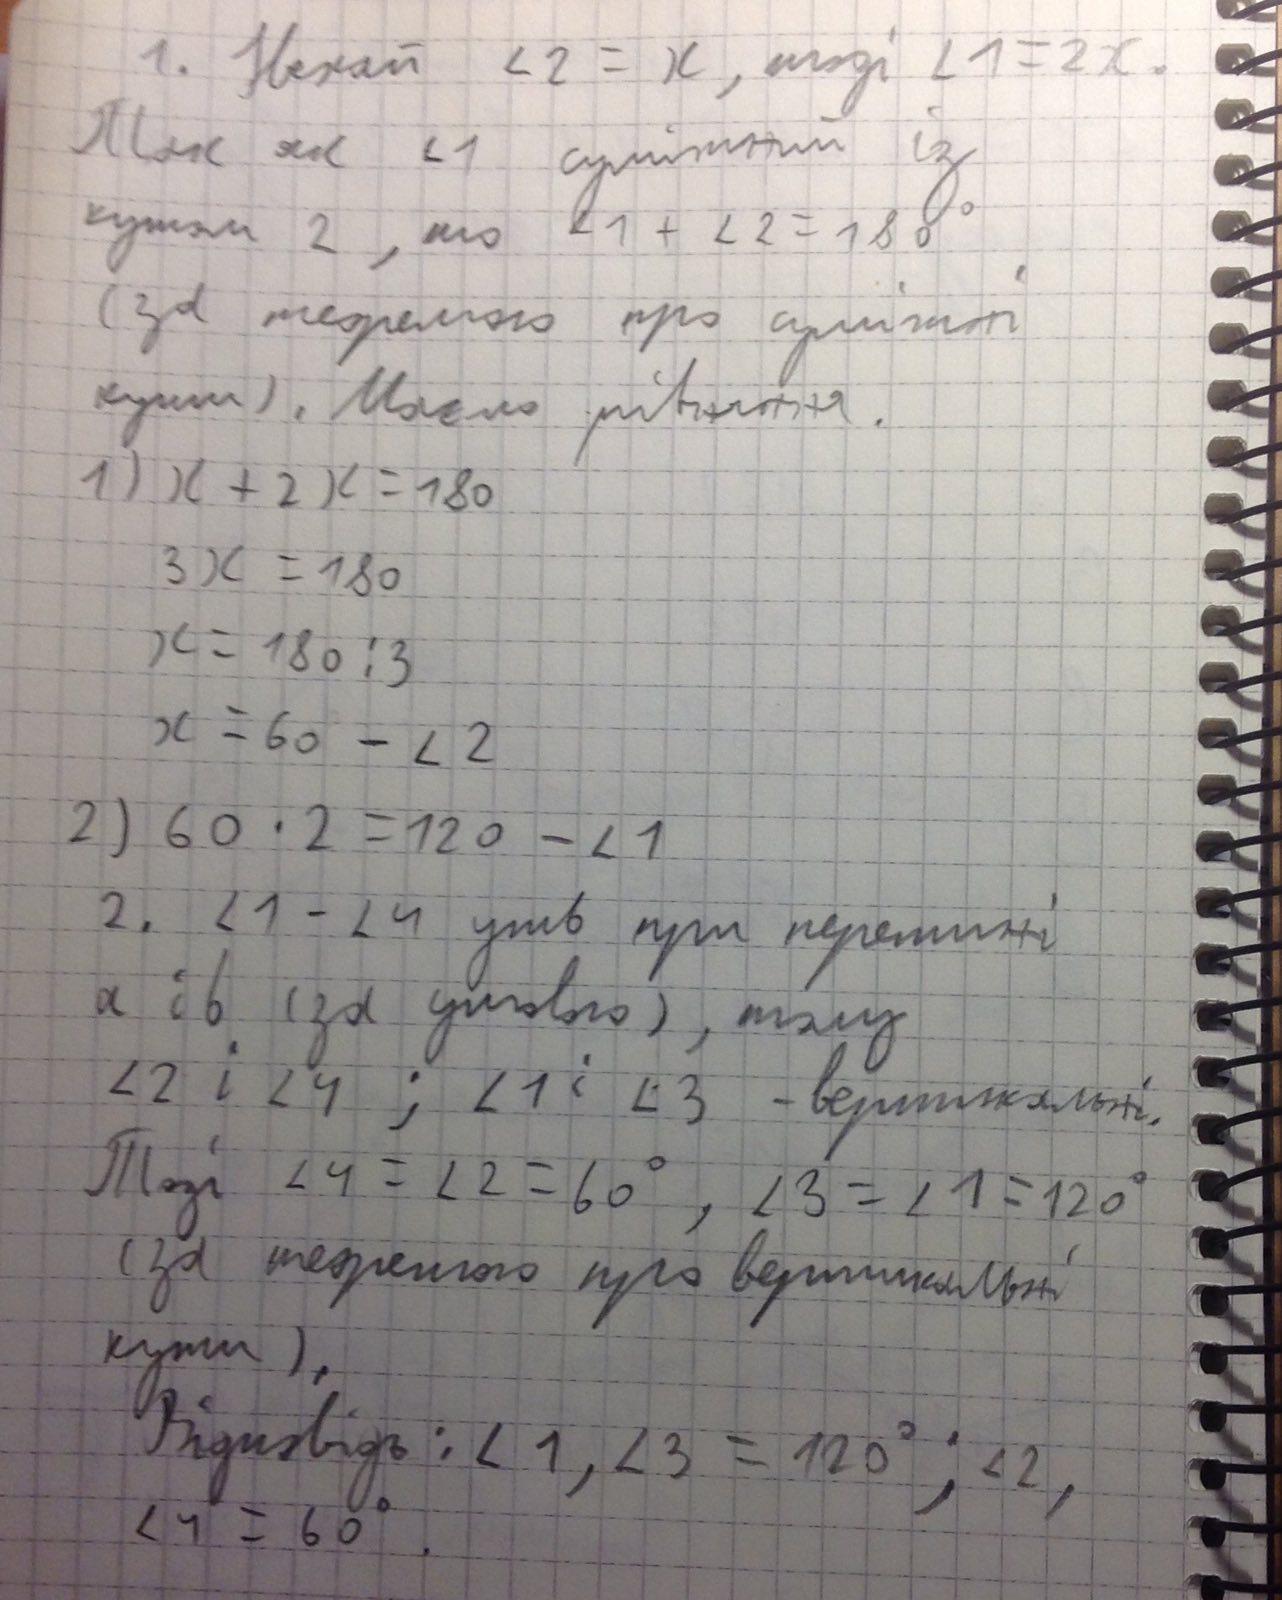 1. Нехай ∠2 = x, тоді ∠1 = 2x.
Так як ∠1 суміжний із
кутом 2, то ∠1 + ∠2 = 180°
(за теоремою про суміжні
кути). Маємо рівняння.
1) x + 2x = 180
3x = 180
x = 180 : 3
x = 60 - ∠2
2) 60 · 2 = 120 - ∠1
2. ∠1 - ∠4 утв при перетині
a і b (за умовою), тому
∠2 і ∠4 ; ∠1 і ∠3 - вертикальні.
Тоді ∠4 = ∠2 = 60°, ∠3 = ∠1 = 120°
(за теоремою про вертикальні
кути).
Відповідь: ∠1, ∠3 = 120°; ∠2,
∠4 = 60°.